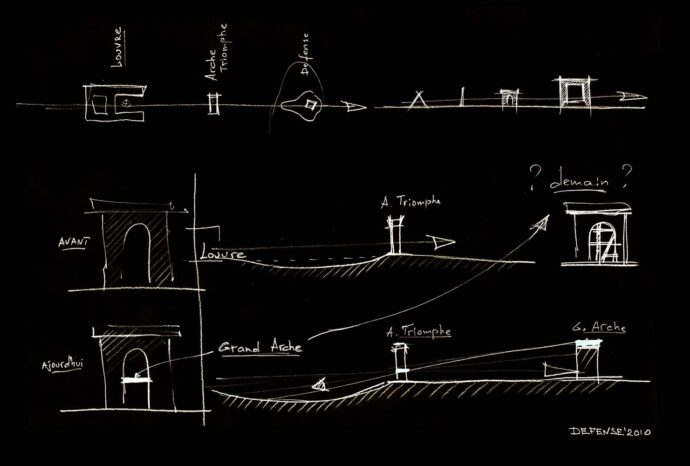 Louvre
Arche
Triomphe
Défense
? demain ?
A. Triomphe
AVANT
Louvre
A. Triomphe
G. Arche
Grand Arche
Ajourdhui
DEFENSE'2010